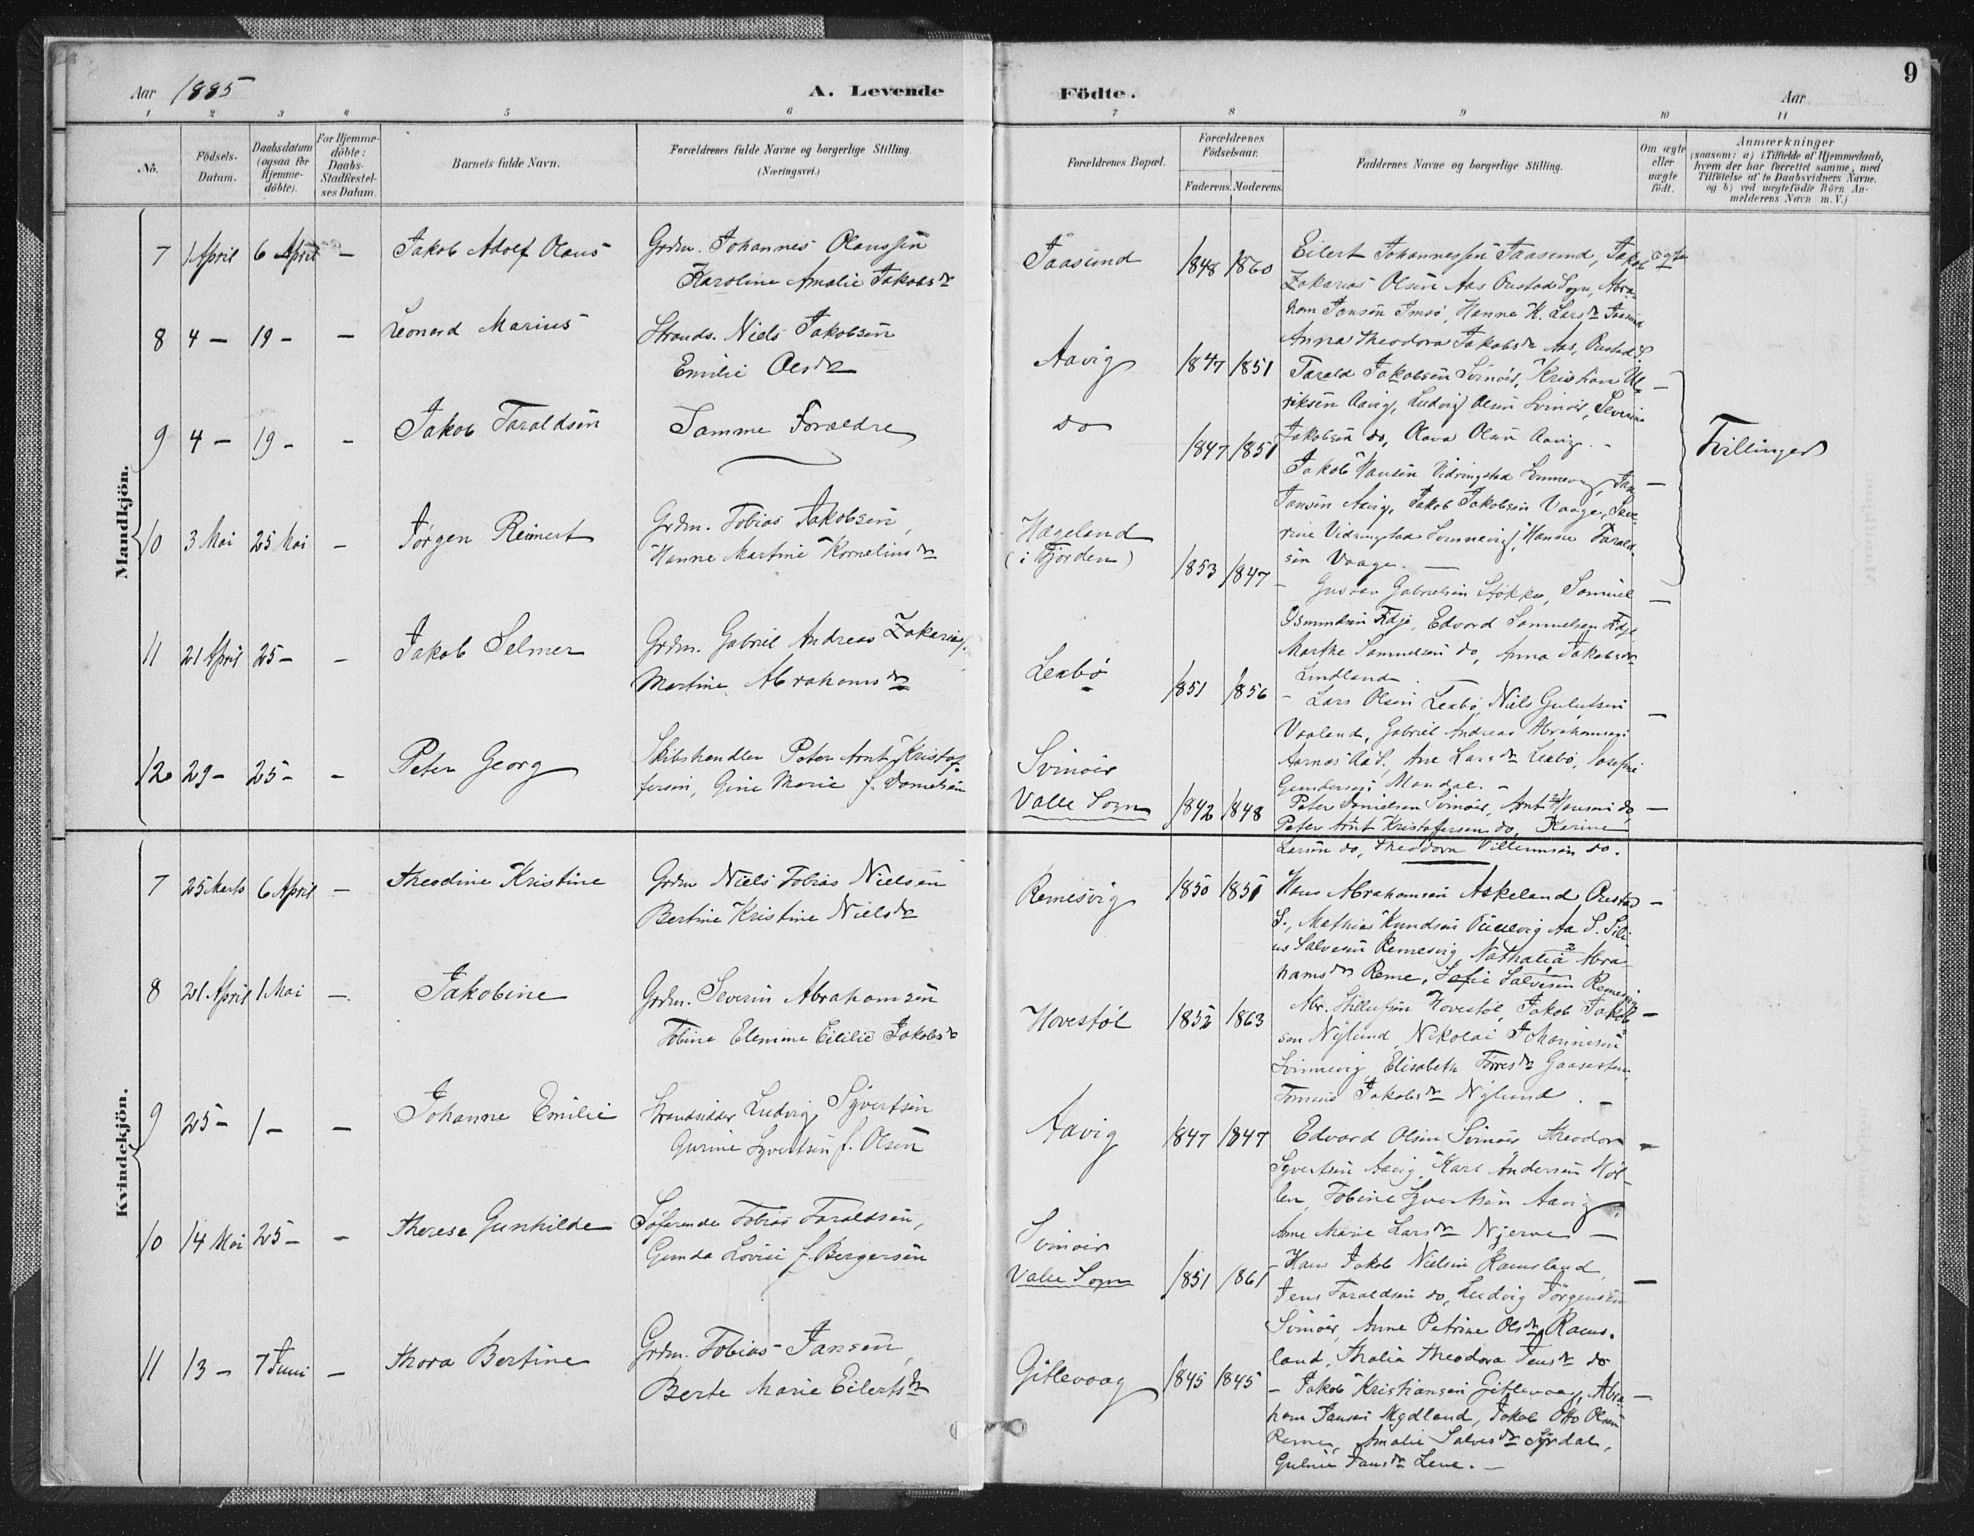 9
Aar 1885
A. Levende
Födte.
Aar
1 2 3 4 5 6 7 8 9 10 11
No.
Födsels-Datum.
Daabsdatum (ogsaa for Hjemme-döbte).
For Hjemme-döbte: Daabs-Stadfæstel-ses Datum.
Barnets fulde Navn.
Forældrenes fulde Navne og borgerlige Stilling
(Næringsvei.)
Forældrenes Bopæl.
Forældrenes Födselsaar.
Faderens. Moderens.
Faddernes Navne og borgerlige Stilling.
Om ægte eller uægte födt.
Anmærkninger
(saasom: a) i Tilfælde af Hjemmedaab,
hvem der har forrettet samme, med
Tilföielse af to Daabsvidners Navne.
og b) ved uægtefödte Börn An-
melderens Navn m. V.)
Mandkjön.
7 1 April 6 April — Jakob Adolf Olaus
Grdm. Johannes Olaussen
Karoline Amalie Jakobsdr
Taasund 1848 1860
Eilert Johannessen Taasund, Jakob
Zakarias Olsen Aas Oustads Sogn, Abra-
ham Jansen Imsø, Hanne K. Larsdr Taasund
Anna Theodora Jakobsdr Aas, Oustad S.
ægte
8 4 — 19 — — Leonard Marius
Strands. Niels Jakobsen
Emilie Olsdr
Aavig 1847 1851
Tarald Jakobsen Svinöir, Kristian Ul-
riksen Aavig, Ludvig Olsen Svinöir, Severine
Jakobsen do, Olava Olsen Aavig. —
9 4 — 19 — — Jakob Taraldsen
Samme Forældre
do 1847 1851
Jakob Hansen Vidringstad Sonnevig, Jan
Jansen Aavig, Jakob Jakobsen Vaage, Seve-
rine Vidringstad Sonnevig, Hanne Tarald-
sen Vaage. —
Tvillinger
10 3 Mai 25 Mai — Jørgen Reinert
Grdm. Tobias Jakobsen,
Hanne Martine Korneliusdr
Hageland
(i Fjorden) 1853 1847
Gustav Gabrielsen Stökke, Samuel
Osmundsen Fidje, Edvard Samuelsen Fidje
Marthe Samuelsen do, Anna Jakobsdr
Lindland. —
11 21 April 25 — — Jakob Selmer
Grdm. Gabriel Andreas Zakarias.
Martine Abrahamsdr
Lexbø 1851 1856
Lars Olsen Lexbø, Niels
Vaaland, Gabriel Andreas Abrahamsen
Aarnes Aa S., Ane Larsdr Lexbø, Josefine
Gundersen Mandal. —
12 29 — 25 — — Peter Georg
Skibshandler Peter Arnt Kristof-
fersen, Gine Marie f. Danielsen
Svinöir
Valle Sogn 1842 1848
Peter Danielsen Svinöir, Arnt Hansen do,
Peter Arnt Kristoffersen do, Karine
Larsen do, Theodora Villumsen do.
Kvindekjön.
7 25 Marts 6 April — Theodine Kristine
Grdm Niels Tobias Nielsen
Bertine Kristine Nielsdr
Remesvig 1850 1851
Hans Abrahamsen Askeland, Oustad
S., Mathias Knudsen Aa S. Sili-
us Salvesen Remesvig, Nathalia Abra-
hamsdr Reme, Sofie Salvesen Remesvig
8 21 April 1 Mai — Jakobine
Grdm. Severin Abrahamsen
Tobine Elenine Eililie Jakobsdr
Hovestöl 1852 1863
Abr. Hovestöl, Jakob Jakob-
sen Nylund, Nikolai Johannesen
Svinnevig, Elisabeth Torresdr Gaasesten,
Tomine Jakobsdr Nylund. —
9 25 — 1 — — Johanne Emilie
Strandsidder Ludvig Syvertsen
Gurine Syvertsen f. Olsen
Aavig 1847 1847
Edvard Olsen Svinöir Theodor
Syvertsen Aavig, Karl Andersen Höl-
len, Tobine Syvertsen Aavig,
Ane Marie Larsdr Njerve —
10 14 Mai 25 — — Therese Gunhilde
Söfarende Tobias Taraldsen,
Gunda Lovise f. Bergersen
Svinöir
Valle Sogn 1851 1861
Hans Jakob Nielsen Ramsland,
Jens Taraldsen do, Ludvig Jörgensen
Svinöir, Anne Petrine Olsdr Rams-
land, Thalia Theodora Jensdr do
11 13 — 7 Juni — Thora Bertine
Grdm. Tobias Jansen,
Berte Marie Eilertsdr
Gitlevaag 1845 1845
Jakob Kristiansen Gitlevaag, Abra-
ham Jansen Mydland, Jakob Otto Olsen
Reme, Amalie Salvesdr Syrdal,
Guline Jansdr Lene. —